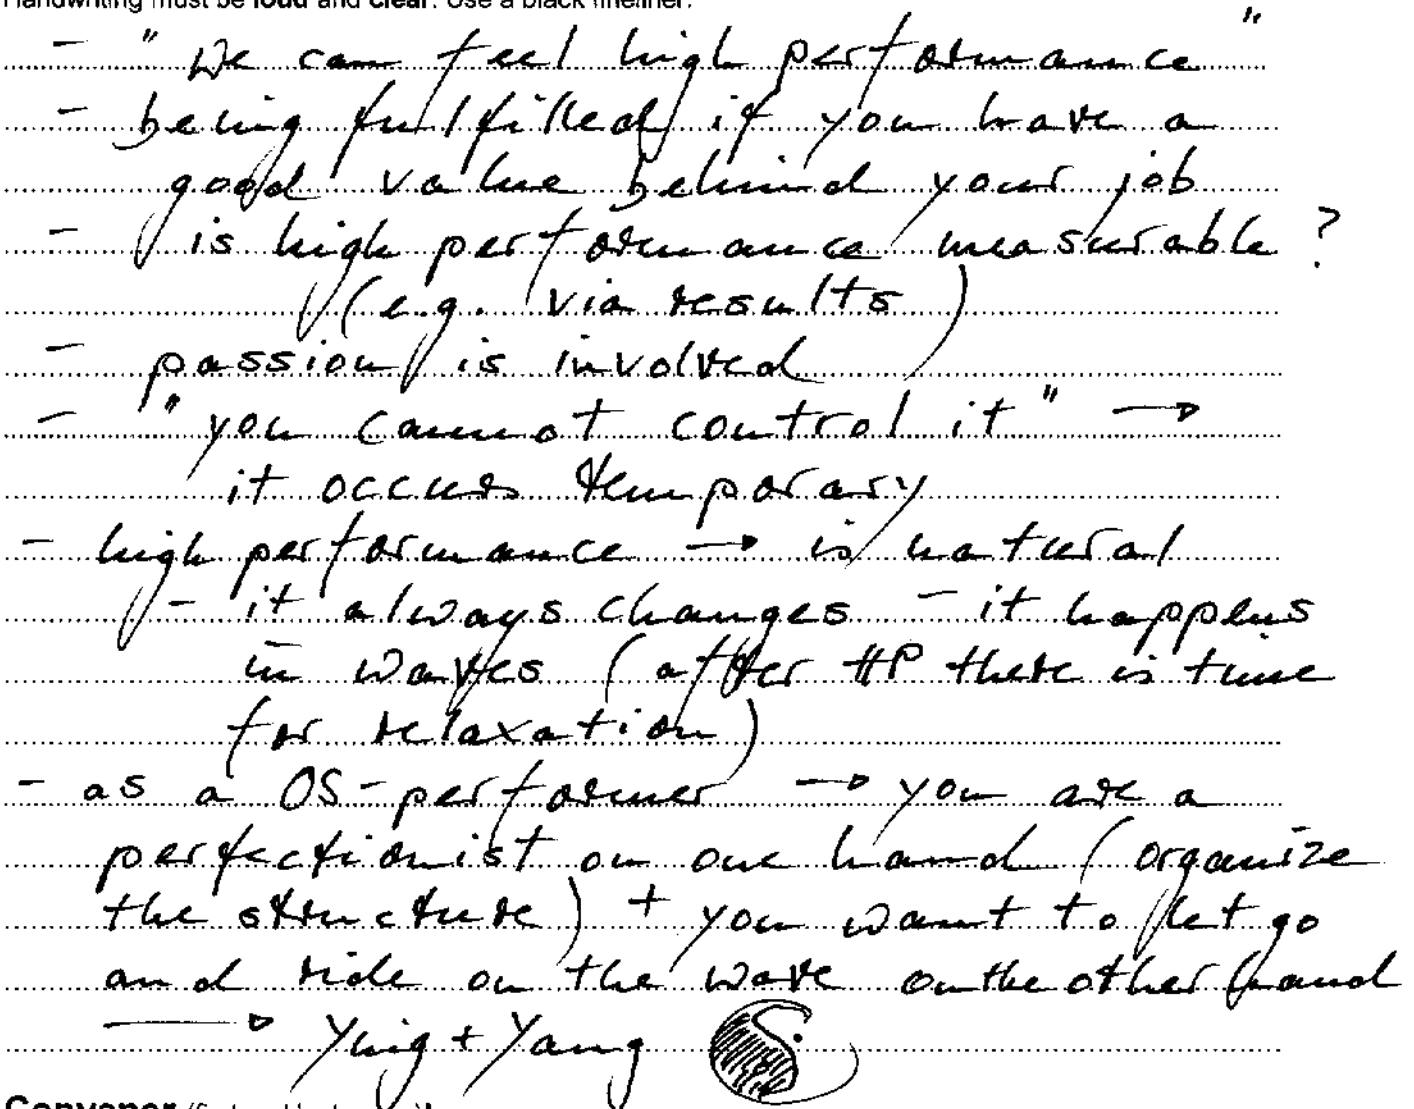 Handwriting must be loud and clear. Use a black fineliner.
- "We can feel high performance"
- being fulfilled if you have a
good value behind your job
- is high performance measurable?
(e.g. via results)
- passion is involved
- "you cannot control it" →
it occurs temporary
- high performance → is natural
- it always changes - it happens
in waves (after HP there is time
for relaxation)
- as a OS-performer → you are a
perfectionist on one hand (organize
the structure) + you want to let go
and ride on the wave on the other hand
→ Ying + Yang
Convenor